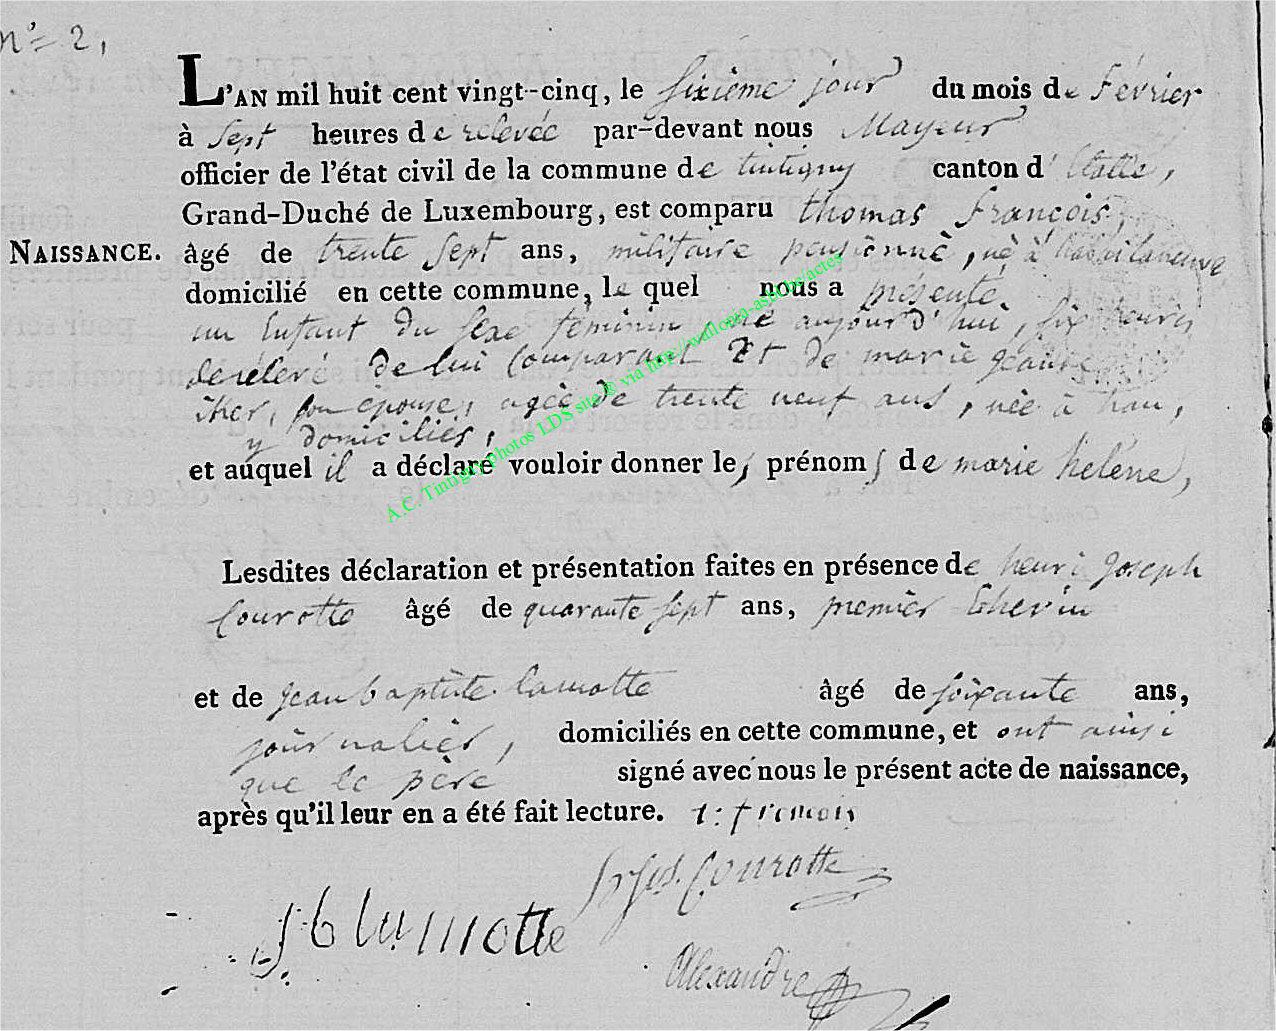 n.º 2,
L'AN mil huit cent vingt-cinq, le sixième jour du mois de février
à sept heures de relevée par-devant nous Mayeur
officier de l'état civil de la commune de tintigny canton d'Etalle,
Grand-Duché de Luxembourg, est comparu thomas françois,
NAISSANCE. âgé de trente sept ans, militaire pensionné, né à
domicilié en cette commune, le quel nous a présenté
un Enfant du sexe féminin, né aujourd'hui, six heures
de relevé de lui Comparant Et de marie jeanne
iker, son épouse, agée de trente neuf ans, née à han,
y domiciliés,
et auquel il a déclaré vouloir donner les prénoms de marie héléne,
A.C. Tintigny photos LDS site ® via http://wallonia-asbl.be/actes
Lesdites déclaration et présentation faites en présence de henri Joseph
Courotte âgé de quarante sept ans, premier Echevin
et de jean baptiste lamotte âgé de soixante ans,
journalier, domiciliés en cette commune, et ont ainsi
que le père signé avec nous le présent acte de naissance,
après qu'il leur en a été fait lecture. t: francois
Courotte
J b lamotte
Alexandre